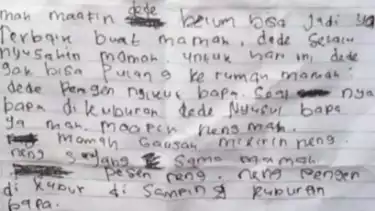 mah maafin dede belum bisa jadi yg
Terbaik buat mamah. dede selalu
nyusahin mamah. untuk hari ini dede
gak bisa Pulang ke rumah mamah.
dede Pengen ngikut bapa. nya
bapa di kuburan dede Nyusul bapa
ya mah. maafin neng mah.
mamah Gausah mikirin neng.
neng sayang sama mamah.
pesen neng. neng Pengen
di Kubur di Samping kuburan
bapa.